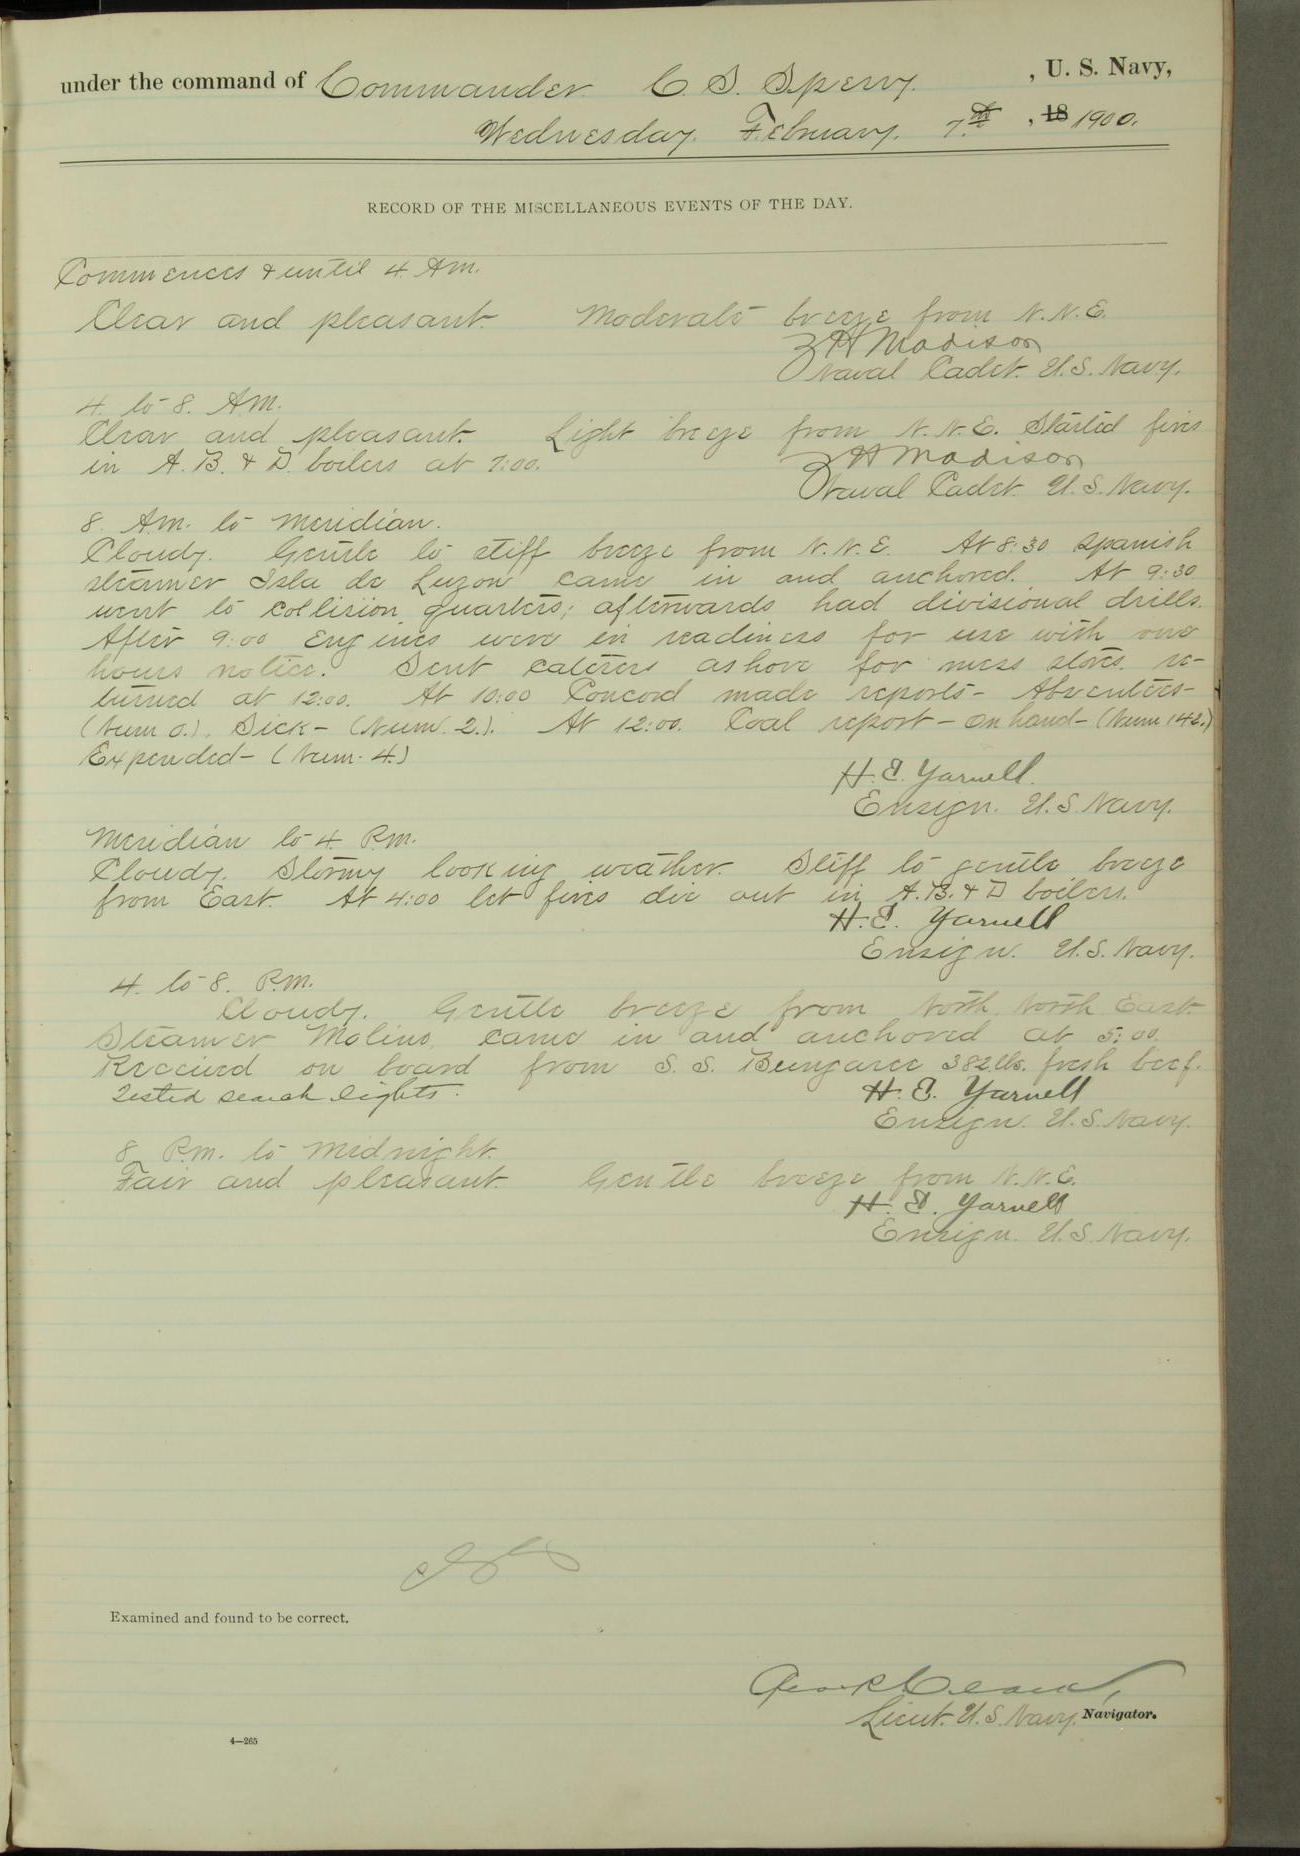 under the command of Commander C. S. Sperry. , U. S. Navy,
Wednesday. February. 7th , 18 1900.
RECORD OF THE MISCELLANEOUS EVENTS OF THE DAY.
Commences & until 4 Am.
Clear and pleasant. Moderate breeze from N.N.E.
ZH Madison
Naval Cadet. U.S. Navy.
4 to 8. AM.
Clear and pleasant. Light breeze from N.N.E. Started fires
in A.B. & D. boilers at 7:00.
ZH Madison
Naval Cadet. U.S. Navy.
8 Am. to Meridian.
Cloudy. Gentle to stiff breeze from N.N.E. At 8:30 Spanish
steamer Isla de Luzon came in and anchored. At 9:30
went to collision quarters; afterwards had divisional drills.
After 9:00 Engines were in readiness for use with one
hours notice. Sent caterers ashore for mess stores. re-
turned at 12:00. At 10:00 Concord made reports- Absentees-
(Num 0.). Sick- (Num. 2.). At 12:00. Coal report- on hand- (Num 142.)
Expended- (Num. 4.)
H. E. Yarnell.
Ensign. U.S. Navy.
Meridian to 4 P.m.
Cloudy. Stormy looking weather. Stiff to gentle breeze
from East. At 4:00 let fires die out in A.B. & D boilers.
H. E. Yarnell
Ensign. U.S. Navy.
4 to 8. P.m.
Cloudy. Gentle breeze from North North East.
Steamer Molino, came in and anchored at 5:00.
Received on board from S. S. Bungaree 382 lbs. fresh beef.
Tested search lights.
H. E. Yarnell
Ensign. U.S. Navy.
8 P.m. to Midnight.
Fair and pleasant. Gentle breeze from N.N.E.
H. E. Yarnell
Ensign. U.S. Navy.
Examined and found to be correct.
Lieut. U.S. Navy. Navigator.
4—265